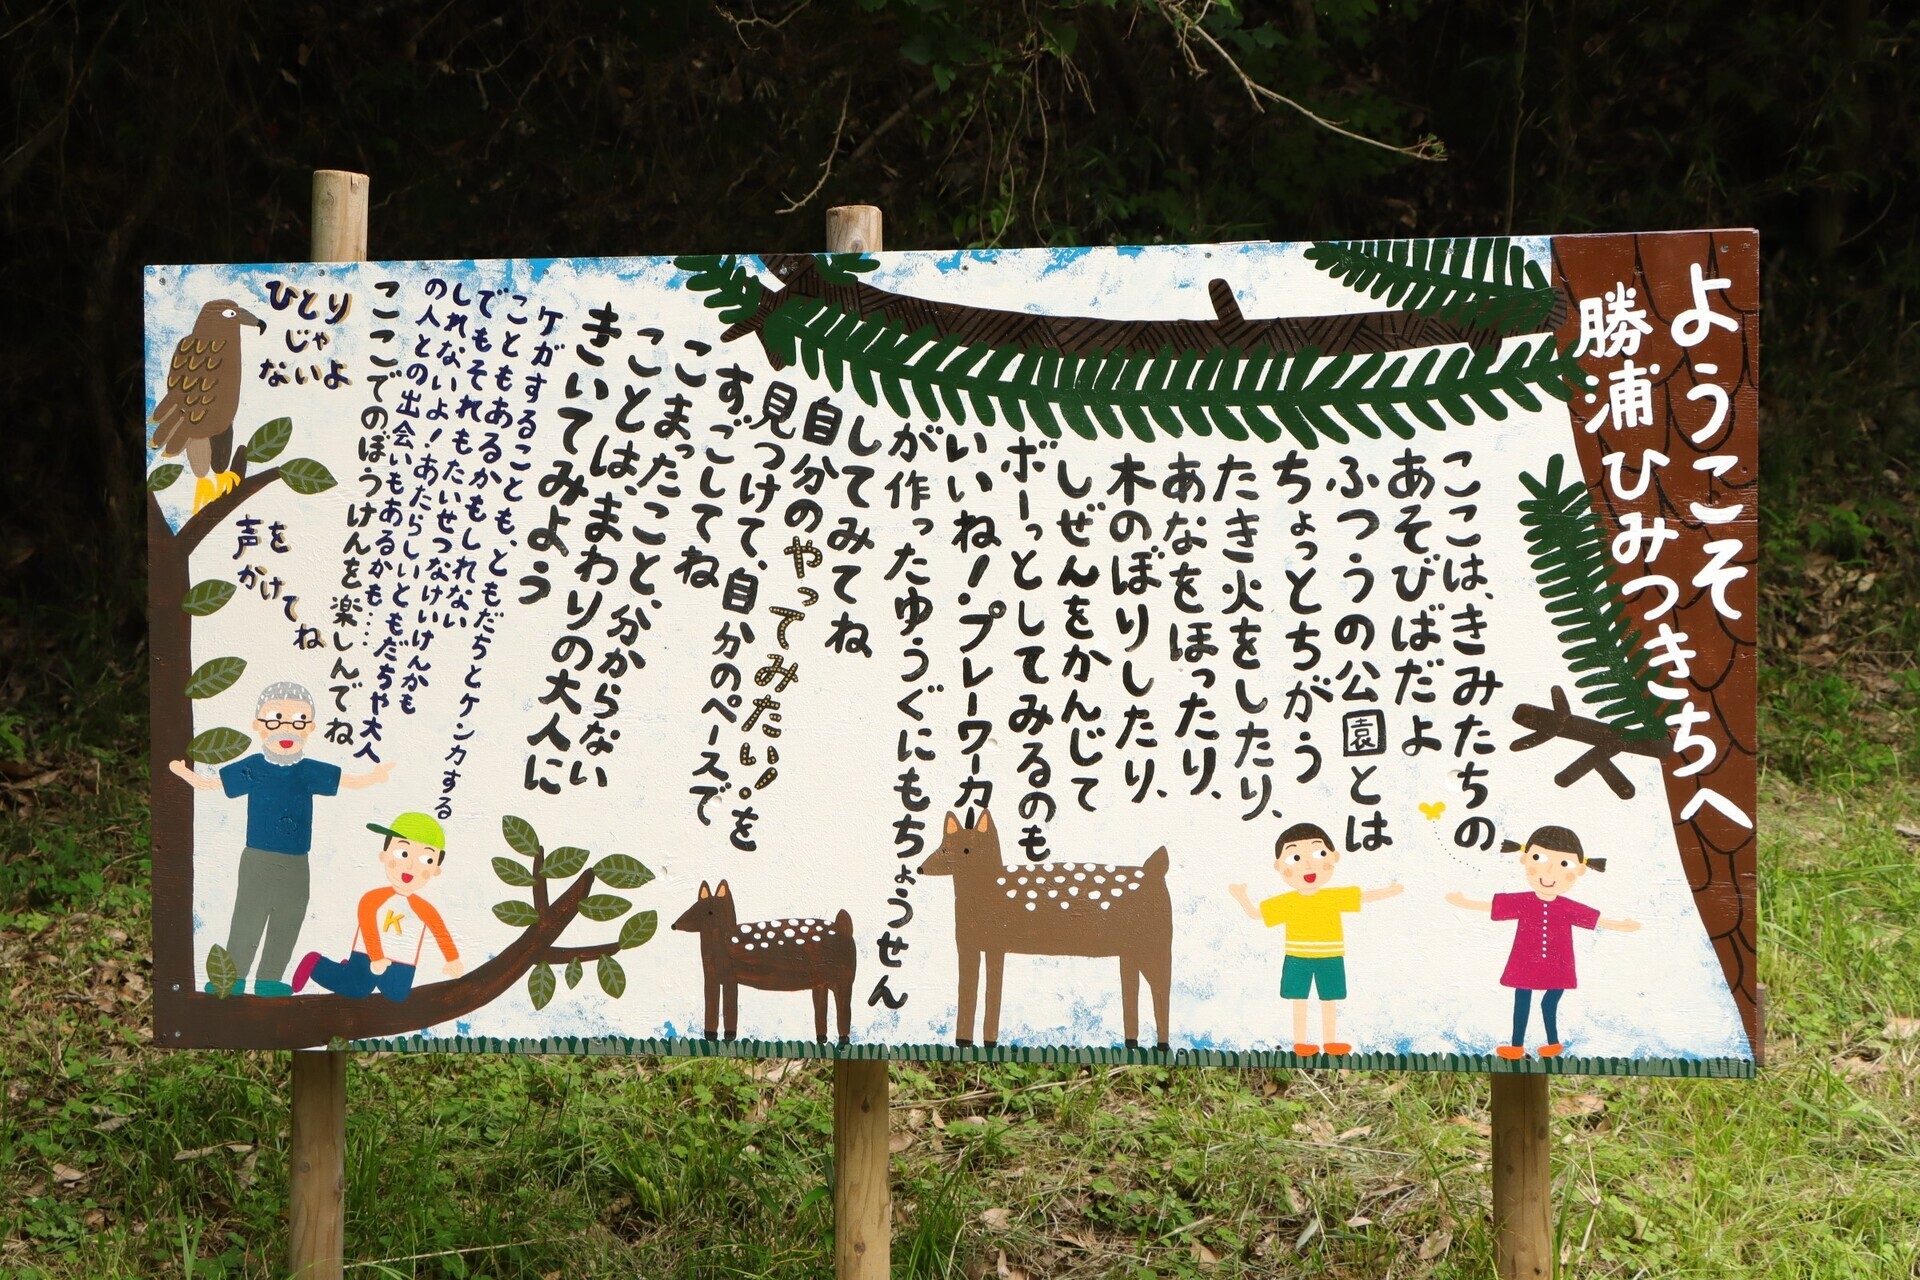 ようこそ
勝浦ひみつきちへ
ここは、きみたちの
あそびばだよ
ふつうの公園とは
ちょっとちがう
たき火をしたり、
あなをほったり、
木のぼりしたり、
しぜんをかんじて
ボーっとしてみるのも
いいね！プレーワーカー
が作ったゆうぐにもちょうせん
してみてね
自分のやってみたい！を
見つけて、自分のペースで
すごしてね
こまったこと、分からない
ことは、まわりの大人に
きいてみよう
ケガすることも、ともだちとケンカする
こともあるかもしれない
でもそれもたいせつなけいけんかも
しれないよ！あたらしいともだちや大人
の人との出会いもあるかも……
ここでのぼうけんを楽しんでね
ひとり
じゃ
ないよ
声を
かけてね
K